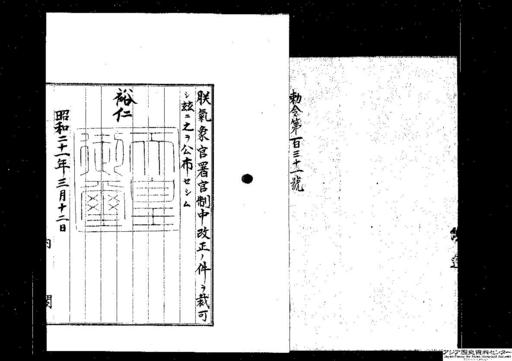 勅令第百三十一號
朕氣象官署官制中改正ノ件ヲ裁可
シ玆ニ之ヲ公布セシム
裕仁
天皇御璽
昭和二十一年三月十二日
内閣
アジア歴史資料センター